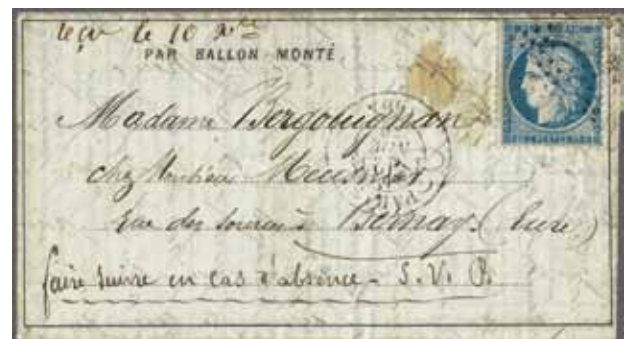 reçu le 10 
PAR BALLON MONTÉ
Madame Bergouignan
chez Monsieur Meusnier
rue des Sources à Bernay (Eure)
faire suivre en cas d'absence - S. V. P.